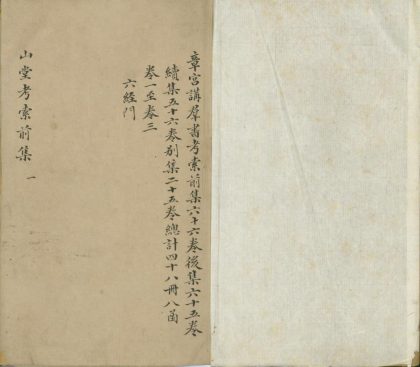 章宮講羣書考索前集六十六卷後集六十五卷
續集五十六卷別集二十五卷總計四十八冊八函
卷一至卷三
六經門
山堂考索前集 一